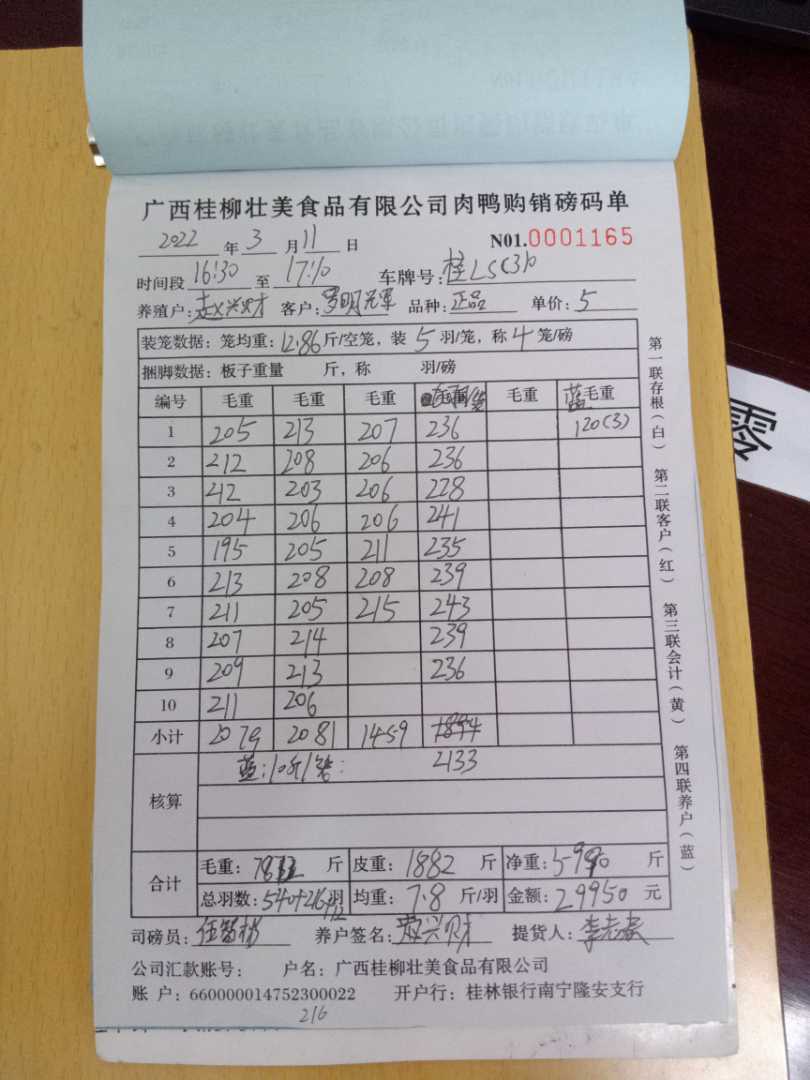 广西桂柳壮美食品有限公司肉鸭购销磅码单
2022 年 3 月 11 日 N01.0001165
时间段 16:30 至 17:10 车牌号: 桂LSC310
养殖户: 赵兴财 客户: 罗明光军 品种: 正品 单价: 5
装笼数据: 笼均重: 12.86 斤/空笼, 装 5 羽/笼, 称 4 笼/磅
捆脚数据: 板子重量 斤, 称 羽/磅
编号 毛重 毛重 毛重 毛重 蓝 毛重
1 205 213 207 236 120(3)
2 212 208 206 236
3 212 203 206 228
4 204 206 206 241
5 195 205 211 235
6 213 208 208 239
7 211 205 215 243
8 207 214 239
9 209 213 236
10 211 206
小计 2079 2081 1459
核算 蓝: 10斤/笼: 2133
合计 毛重: 斤 皮重: 1882 斤 净重: 5990 斤
总羽数: 540+216+12 羽 均重: 7.8 斤/羽 金额: 29950 元
司磅员: 养户签名: 赵兴财 提货人:
公司汇款账号: 户名: 广西桂柳壮美食品有限公司
账 户: 660000014752300022 开户行: 桂林银行南宁隆安支行
216
第一联存根(白) 第二联客户(红) 第三联会计(黄) 第四联养户(蓝)
零